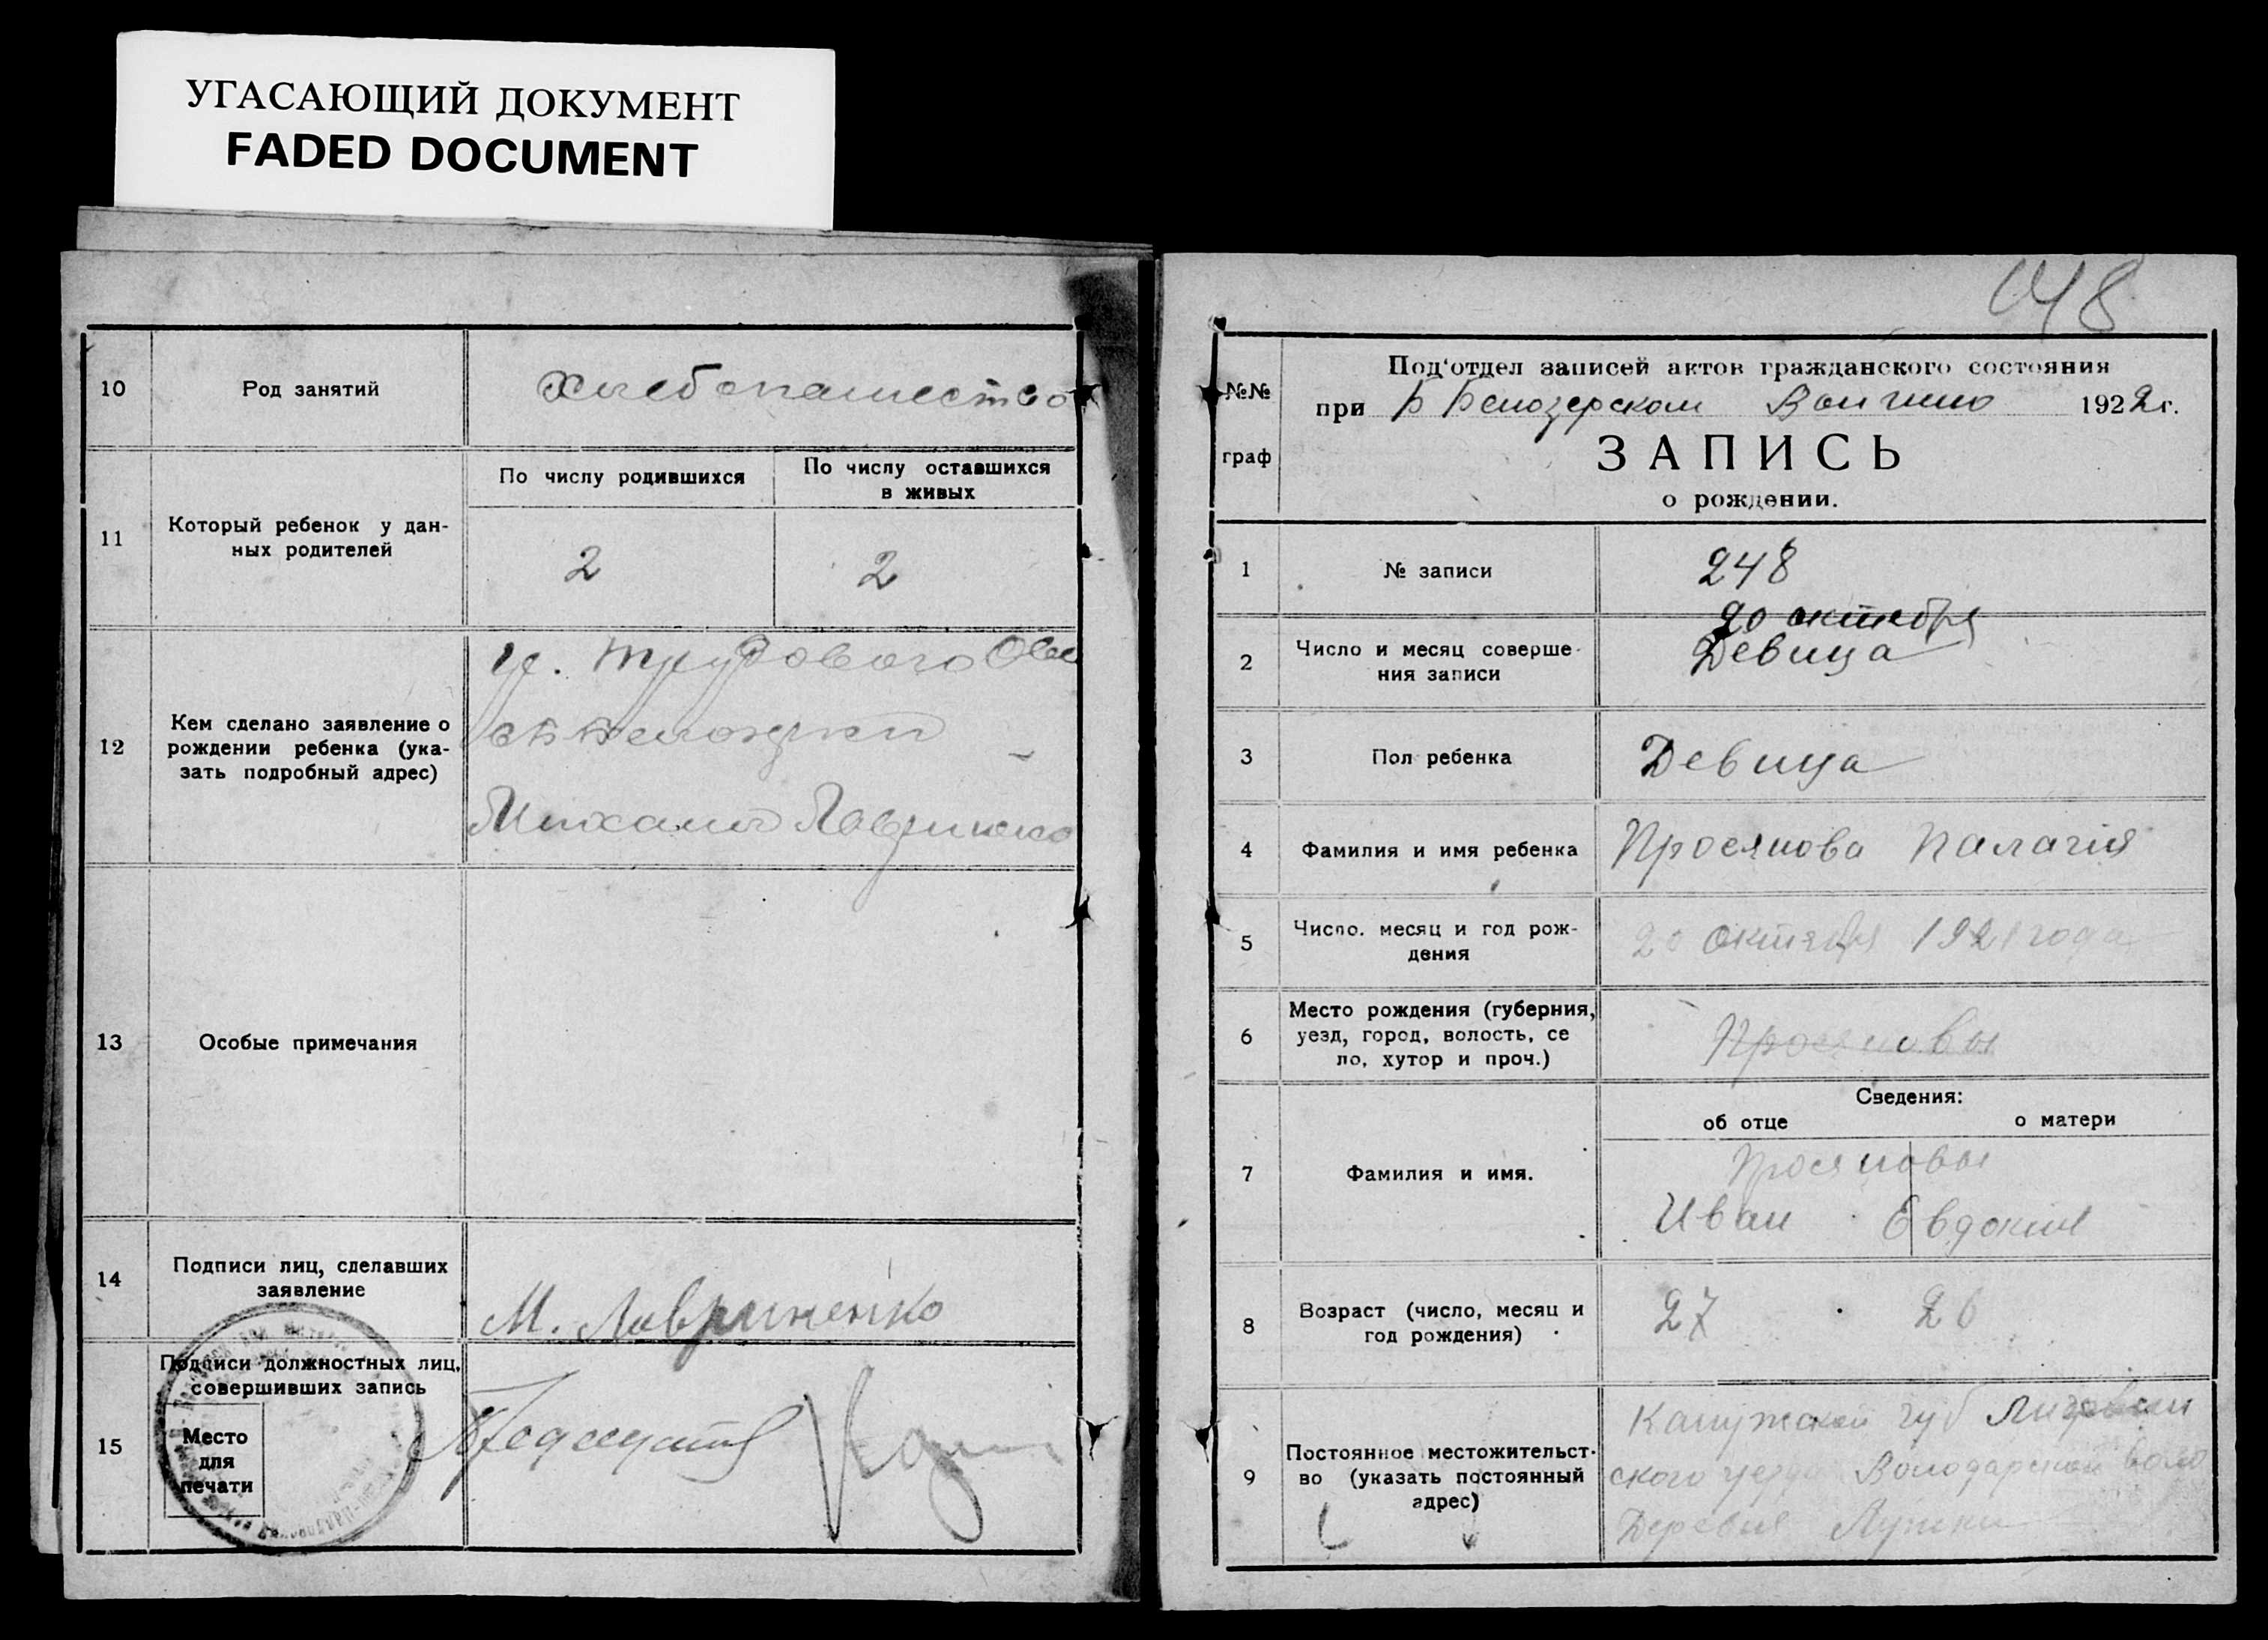 УГАСАЮЩИЙ ДОКУМЕНТ
FADED DOCUMENT
10
Род занятий
Хлебопашество
11
Который ребенок у дан-
ных родителей
По числу родившихся
По числу оставшихся
в живых
2
2
12
Кем сделано заявление о
рождении ребенка (ука-
зать подробный адрес)
Трудового
Михаил Лавриненко
13
Особые примечания
14
Подписи лиц, сделавших
заявление
М. Лавриненко
15
Подписи должностных лиц,
совершивших запись
Место
для
печати
Председатель
048
№№
граф
Под'отдел записей актов гражданского состояния
при Б Белозерском 1922 г.
ЗАПИСЬ
о рождении.
1
№ записи
248
2
Число и месяц соверше-
ния записи
20 октября
Девица
3
Пол ребенка
Девица
4
Фамилия и имя ребенка
Просянова Палагія
5
Число, месяц и год рож-
дения
20 Октября 1921 года
6
Место рождения (губерния,
уезд, город, волость, се
ло, хутор и проч.)
Просяновы
Сведения:
об отце
о матери
7
Фамилия и имя.
Просяновы
Иван Евдокия
8
Возраст (число, месяц и
год рождения)
27
26
9
Постоянное местожительст-
во (указать постоянный
адрес)
Калужской губ
ского уезда Володарской воло
Деревня